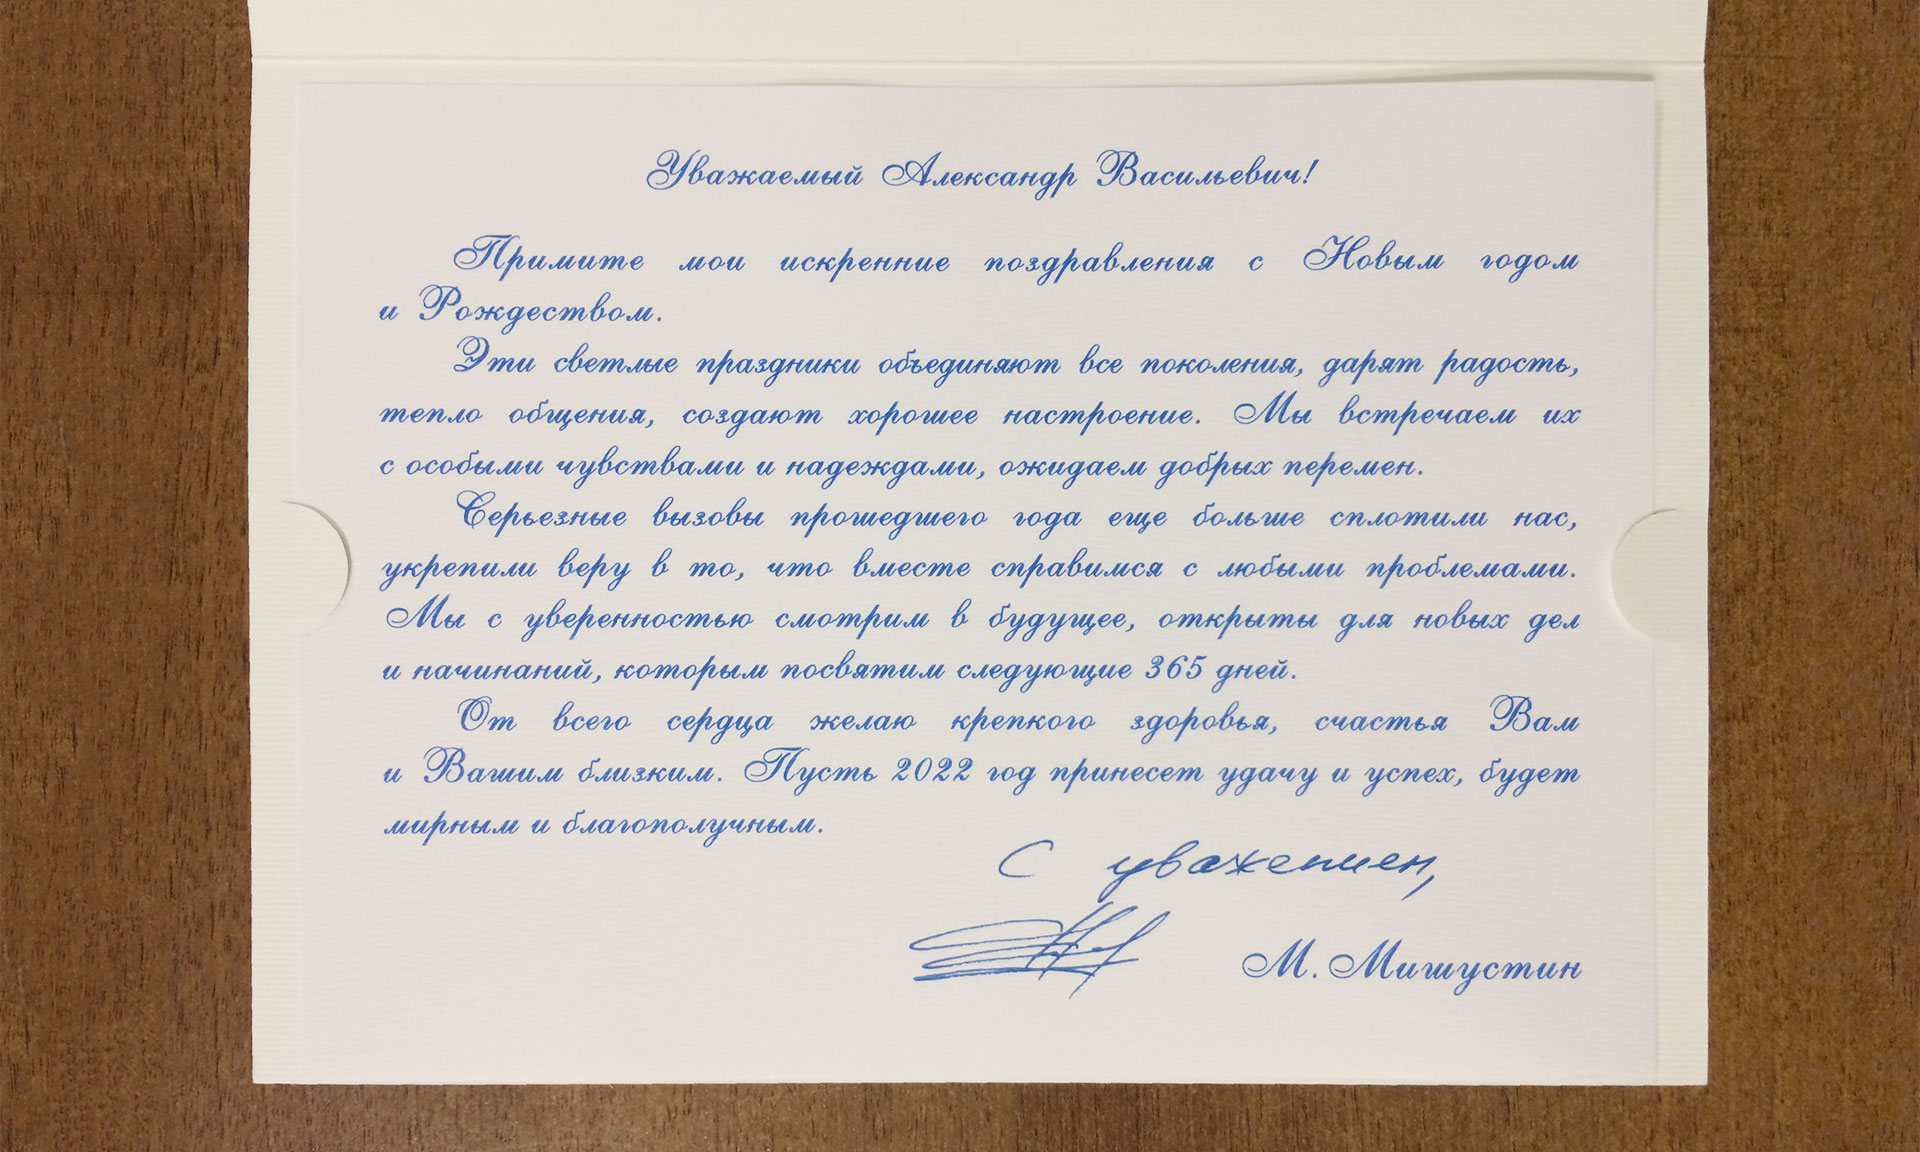 Уважаемый Александр Васильевич!
Примите мои искренние поздравления с Новым годом
и Рождеством.
Эти светлые праздники объединяют все поколения, дарят радость,
тепло общения, создают хорошее настроение. Мы встречаем их
с особыми чувствами и надеждами, ожидаем добрых перемен.
Серьезные вызовы прошедшего года еще больше сплотили нас,
укрепили веру в то, что вместе справимся с любыми проблемами.
Мы с уверенностью смотрим в будущее, открыты для новых дел
и начинаний, которым посвятим следующие 365 дней.
От всего сердца желаю крепкого здоровья, счастья Вам
и Вашим близким. Пусть 2022 год принесет удачу и успех, будет
мирным и благополучным.
С уважением,
М. Мишустин